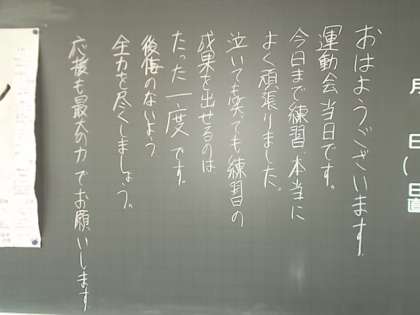 月
日(
日直
おはようございます。
運動会当日です。
今日まで練習、本当に
よく頑張りました。
泣いても笑っても練習の
成果を出せるのは
たった一度です。
後悔のないよう
全力を尽くしましょう。
応援も最大の力でお願いします